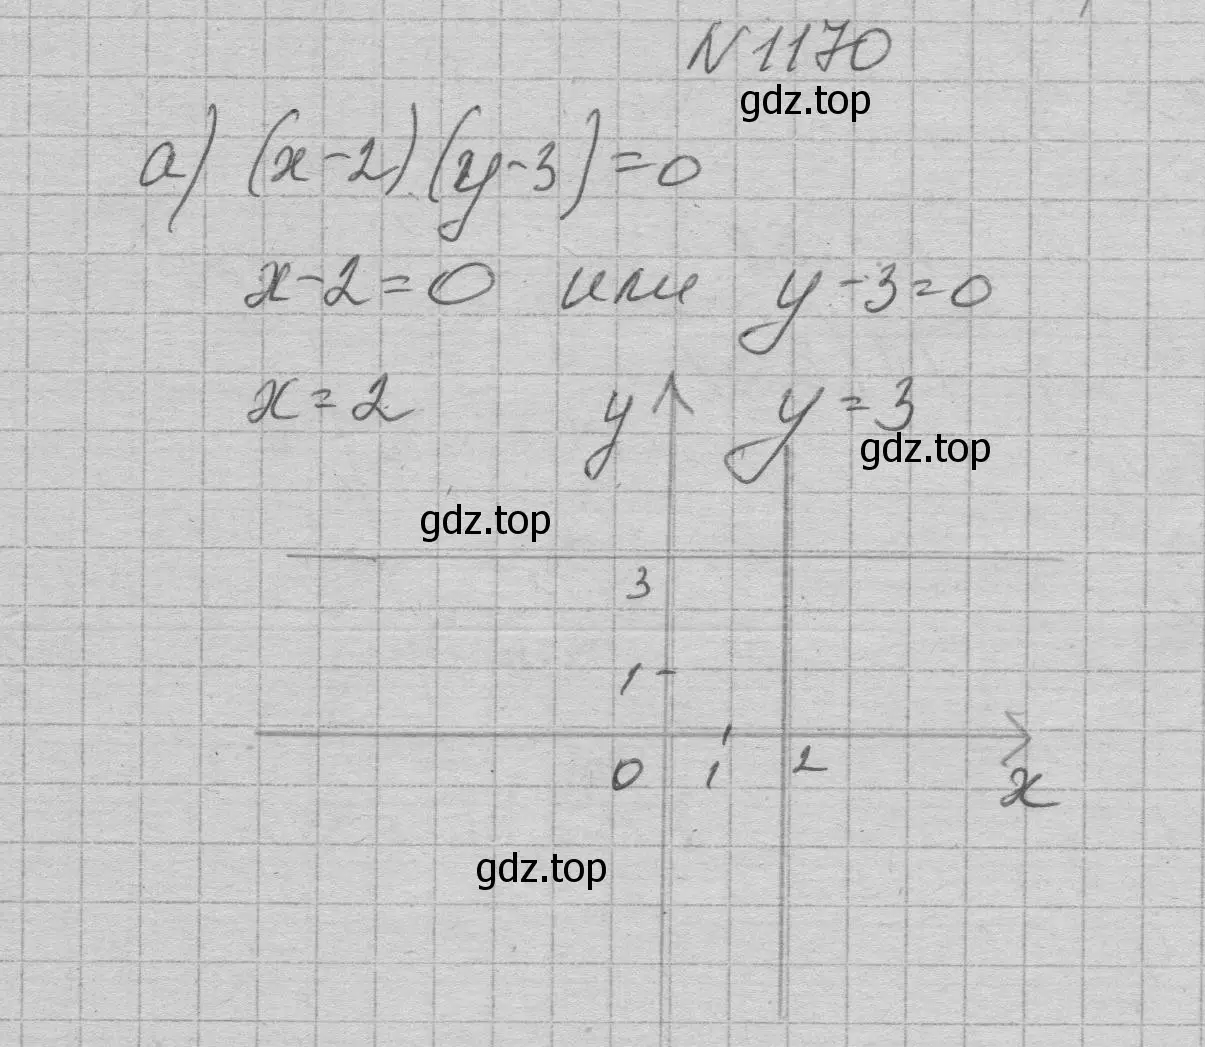 N 1170
gdz.top
а) (x-2)(y-3)=0
x-2=0 или y-3=0
x=2 y=3
y
gdz.top
gdz.top
3
1
0 1 2 x
gdz.top